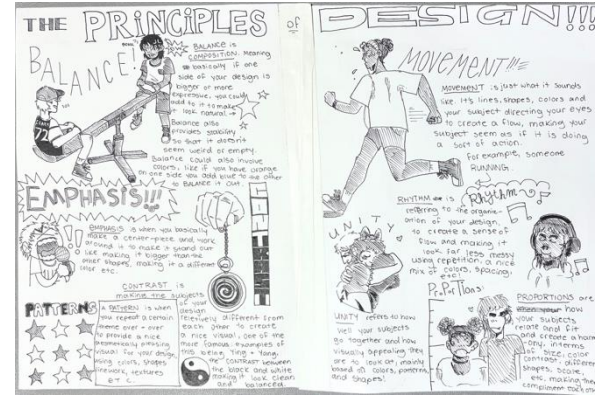 THE PRiNCiPLES of DESIGN!!!
BALANCE!
BALANCE is
COMPOSITION. meaning
basically if one
side of your design is
bigger or more
expressive, you could
add to it to make
it look natural →
Balance also
provides stability
so that it doesn't
seem weird or empty.
Balance could also involve
colors, like if you have orange
on one side you add blue to the other
to BALANCE it out.
EMPHASIS!!!
EMPHASIS is when you basically
make a center-piece and work
around it to make it stand out
like making it bigger than the
other shapes, making it a different
color etc.
CONTRAST
CONTRAST is
making the subjects
of your
design
relatively different from
each other to create
a nice visual, one of the
more famous examples of
this being Ying + Yang.
the CONTRAST between
the black and white
making it look clean
and balanced.
PATTERNS
A PATTERN is when
you repeat a certain
theme over + over
to provide a nice
and pleasing
visual for your design,
using colors, shapes
linework, textures
ETC.
MOVEMENT!!!
MOVEMENT is just what it sounds
like. It's lines, shapes, colors and
your subject directing your eyes
to create a flow, making your
subject seem as if it is doing
a sort of action.
For example, someone
RUNNING...
Rhythm
RHYTHM is
referring to the organiz-
ation of your design,
to create a sense of
flow and making it
look far less messy
using repetition, a nice
mix of colors, spacing,
etc!
UNITY
UNITY refers to how
well your subjects
go together and how
visually appealing they
are to look at, mainly
based on colors, patterns,
and shapes!
PRoPoRTIoNs!
PROPORTIONS are
how
your subjects
relate and fit
and create a harm
-ony, in terms
of size, color
contrast, different
shapes, scale,
etc, making them
compliment each other